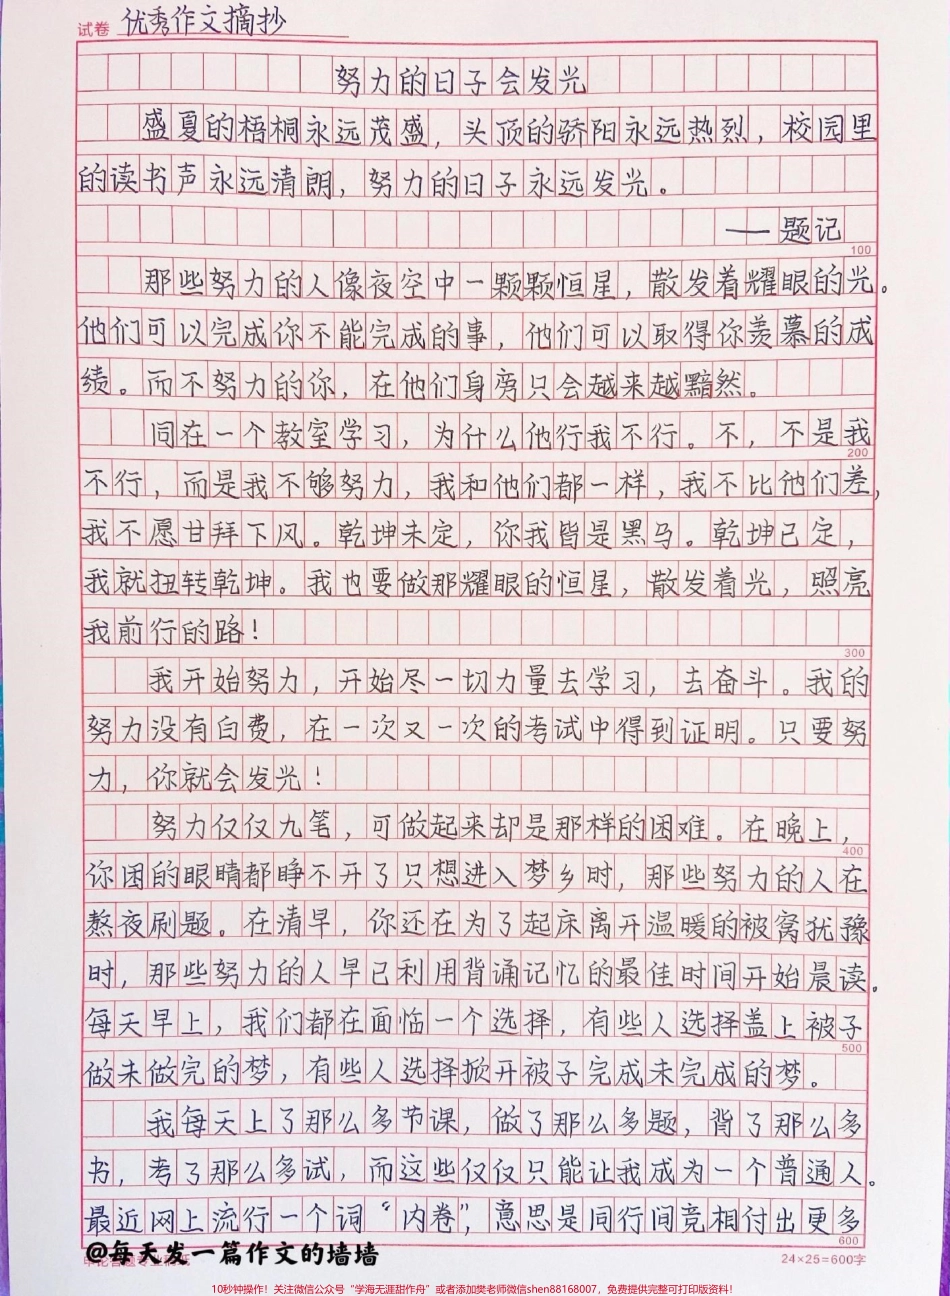 试卷 优秀作文摘抄
努力的日子会发光
盛夏的梧桐永远茂盛，头顶的骄阳永远热烈，校园里
的读书声永远清朗，努力的日子永远发光。
——题记
100
那些努力的人像夜空中一颗颗恒星，散发着耀眼的光。
他们可以完成你不能完成的事，他们可以取得你羡慕的成
绩。而不努力的你，在他们身旁只会越来越黯然。
同在一个教室学习，为什么他行我不行。不，不是我
200
不行，而是我不够努力，我和他们都一样，我不比他们差，
我不愿甘拜下风。乾坤未定，你我皆是黑马。乾坤已定，
我就扭转乾坤。我也要做那耀眼的恒星，散发着光，照亮
我前行的路！
300
我开始努力，开始尽一切力量去学习，去奋斗。我的
努力没有白费，在一次又一次的考试中得到证明。只要努
力，你就会发光！
努力仅仅九笔，可做起来却是那样的困难。在晚上，
400
你困的眼睛都睁不开了只想进入梦乡时，那些努力的人在
熬夜刷题。在清早，你还在为了起床离开温暖的被窝犹豫
时，那些努力的人早已利用背诵记忆的最佳时间开始晨读。
每天早上，我们都在面临一个选择，有些人选择盖上被子
500
做未做完的梦，有些人选择掀开被子完成未完成的梦。
我每天上了那么多节课，做了那么多题，背了那么多
书，考了那么多试，而这些仅仅只能让我成为一个普通人。
最近网上流行一个词“内卷”，意思是同行间竞相付出更多
600
@每天发一篇作文的墙墙
24×25=600字
10秒钟操作！关注微信公众号“学海无涯甜作舟”或者添加樊老师微信shen88168007，免费提供完整可打印版资料！